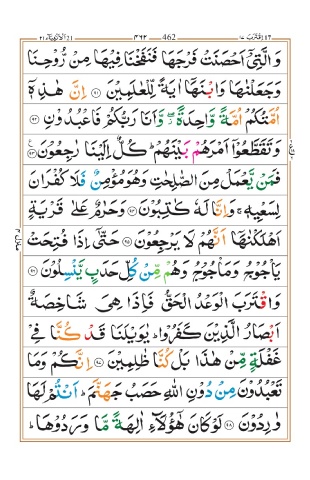 الانبيآء ٢١ ٤٦٢ 462 اقترب ١٧
وَالَّتِیْۤ اَحْصَنَتْ فَرْجَهَا فَنَفَخْنَا فِیْهَا مِنْ رُّوْحِنَا
وَجَعَلْنٰهَا وَابْنَهَاۤ اٰیَةً لِّلْعٰلَمِیْنَ ﴿۹۱﴾ اِنَّ هٰذِهٖۤ
اُمَّتُكُمْ اُمَّةً وَّاحِدَةً ۖ وَّاَنَا رَبُّكُمْ فَاعْبُدُوْنِ ﴿۹۲﴾
وَتَقَطَّعُوْۤا اَمْرَهُمْ بَیْنَهُمْ ؕ كُلٌّ اِلَیْنَا رٰجِعُوْنَ ﴿۹۳﴾
فَمَنْ یَّعْمَلْ مِنَ الصّٰلِحٰتِ وَهُوَ مُؤْمِنٌ فَلَا كُفْرَانَ
لِسَعْیِهٖ ۚ وَاِنَّا لَهٗ كٰتِبُوْنَ ﴿۹۴﴾ وَحَرٰمٌ عَلٰی قَرْیَةٍ
اَهْلَكْنٰهَاۤ اَنَّهُمْ لَا یَرْجِعُوْنَ ﴿۹۵﴾ حَتّٰۤی اِذَا فُتِحَتْ
یَاْجُوْجُ وَمَاْجُوْجُ وَهُمْ مِّنْ كُلِّ حَدَبٍ یَّنْسِلُوْنَ ﴿۹۶﴾
وَاقْتَرَبَ الْوَعْدُ الْحَقُّ فَاِذَا هِیَ شَاخِصَةٌ
اَبْصَارُ الَّذِیْنَ كَفَرُوْا ؕ یٰوَیْلَنَا قَدْ كُنَّا فِیْ
غَفْلَةٍ مِّنْ هٰذَا بَلْ كُنَّا ظٰلِمِیْنَ ﴿۹۷﴾ اِنَّكُمْ وَمَا
تَعْبُدُوْنَ مِنْ دُوْنِ اللّٰهِ حَصَبُ جَهَنَّمَ ؕ اَنْتُمْ لَهَا
وٰرِدُوْنَ ﴿۹۸﴾ لَوْ كَانَ هٰۤؤُلَآءِ اٰلِهَةً مَّا وَرَدُوْهَا ؕ